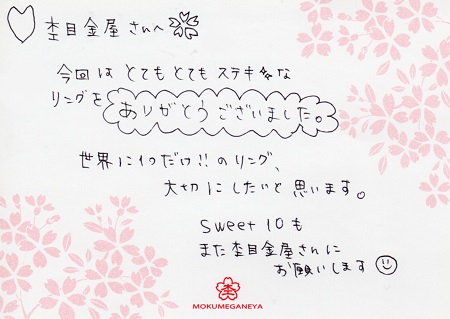 杢目金屋さんへ
今回は とてもとても ステキな
リングを ありがとうございました。
世界に1つだけ!!のリング、
大切にしたいと思います。
sweet 10も
また杢目金屋さんに
お願いします
杢
MOKUMEGANEYA